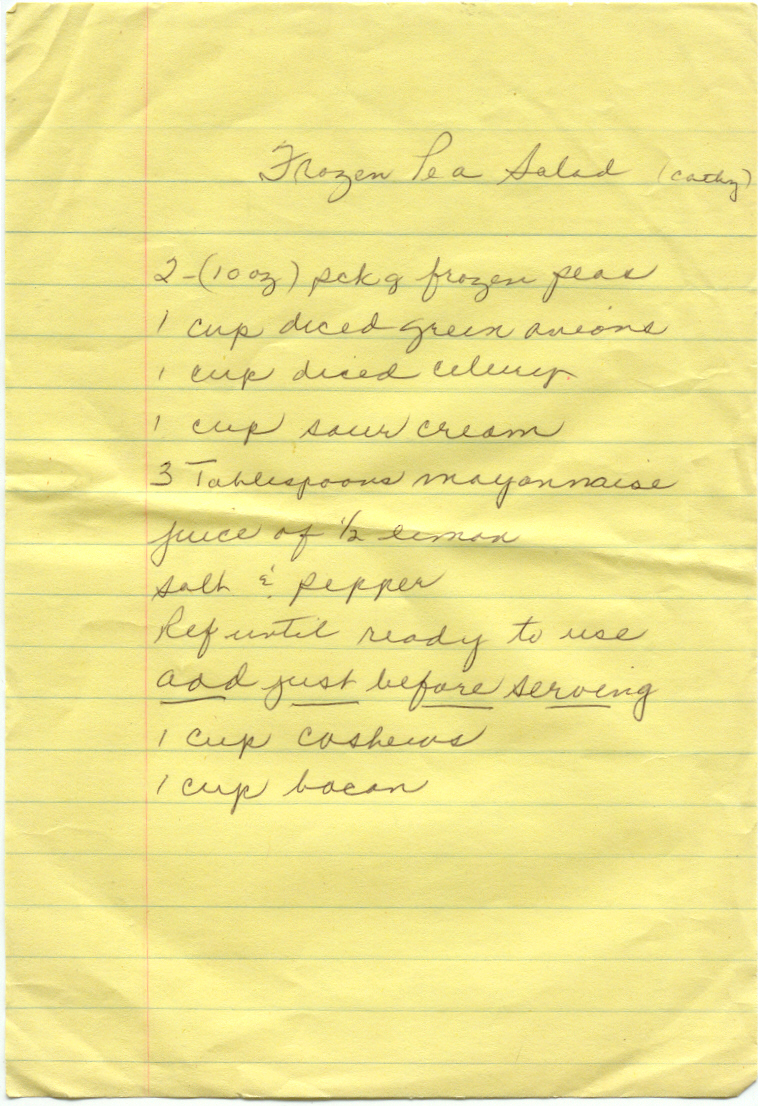 Frozen Pea Salad (Cathy)
2-(10 oz) pckg frozen peas
1 cup diced green onions
1 cup diced celery
1 cup sour cream
3 Tablespoons mayonnaise
juice of 1/2 lemon
salt & pepper
Ref until ready to use
add just before serving
1 cup cashews
1 cup bacon